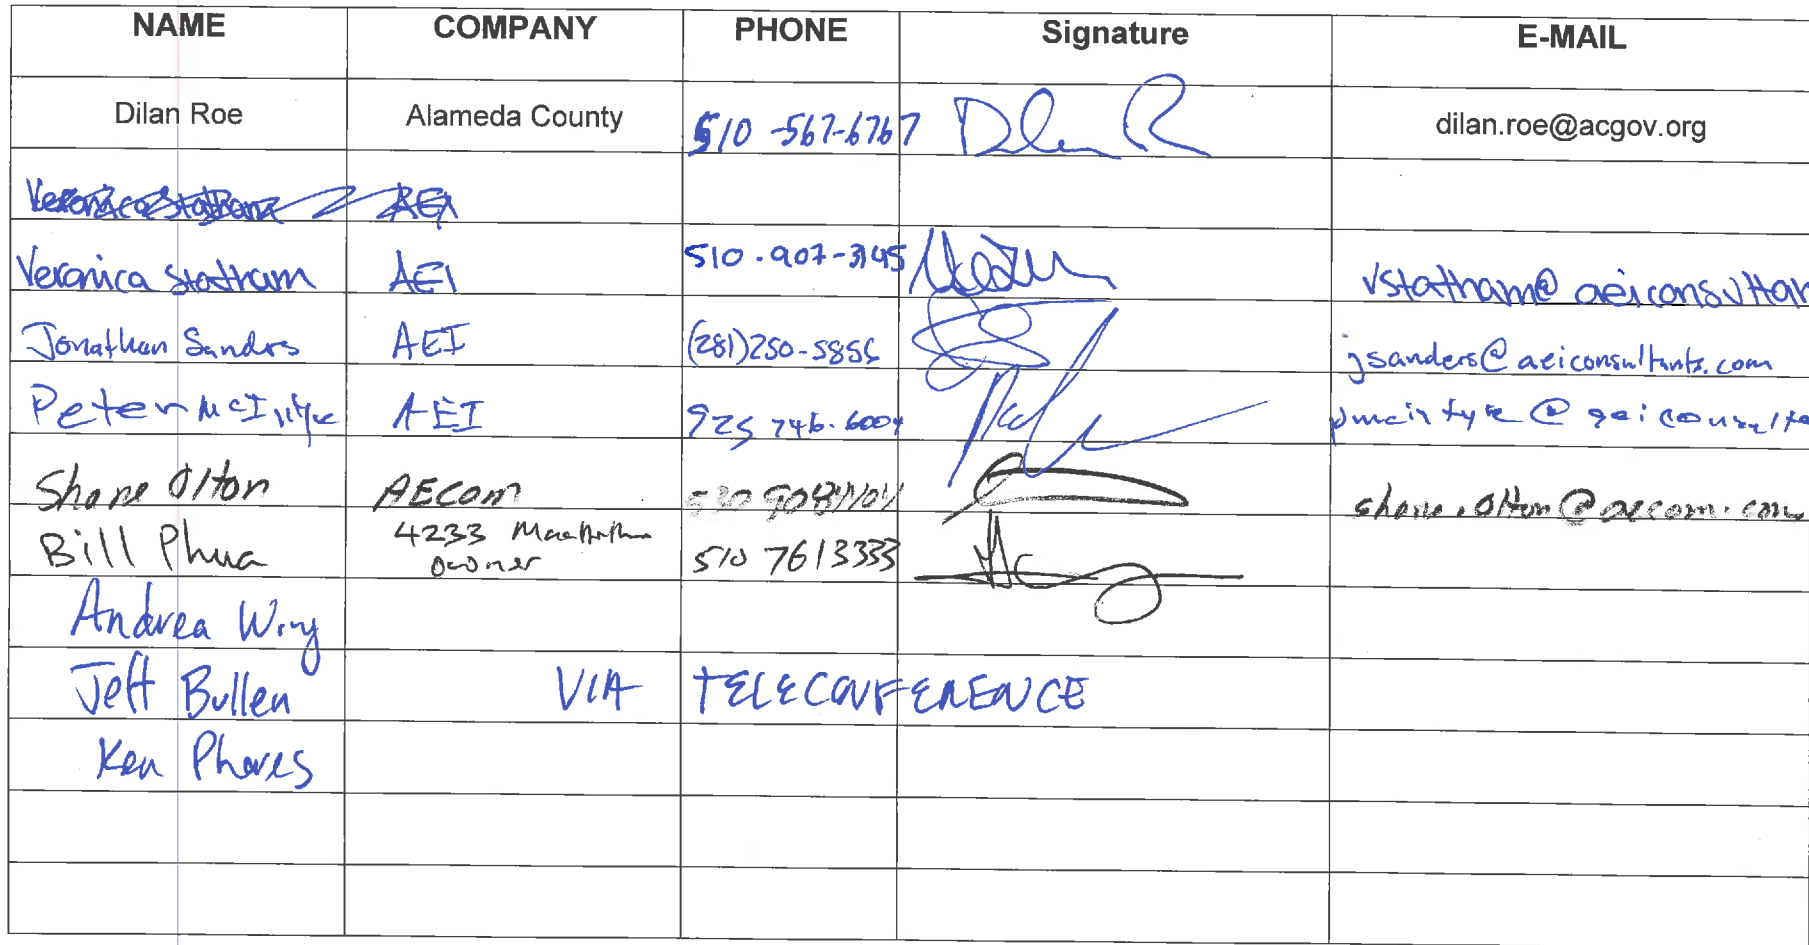 NAME COMPANY PHONE Signature E-MAIL
Dilan Roe Alameda County 510-567-6767 dilan.roe@acgov.org
Veronica Statham AEI
Veronica Statham AEI 510.907-3145 vstatham@aeiconsultan
Jonathan Sanders AEI (281)250-5856 jsanders@aeiconsultants.com
Peter McIntyre AEI 925 746.6004 pmcintyre@aeiconsulta
Shane Olton AECOM shane.olton@aecom.com
Bill Phua 4233 MacArthur 510 7613333
owner
Andrea Wing
Jeff Bullen VIA TELECONFERENCE
Ken Phares